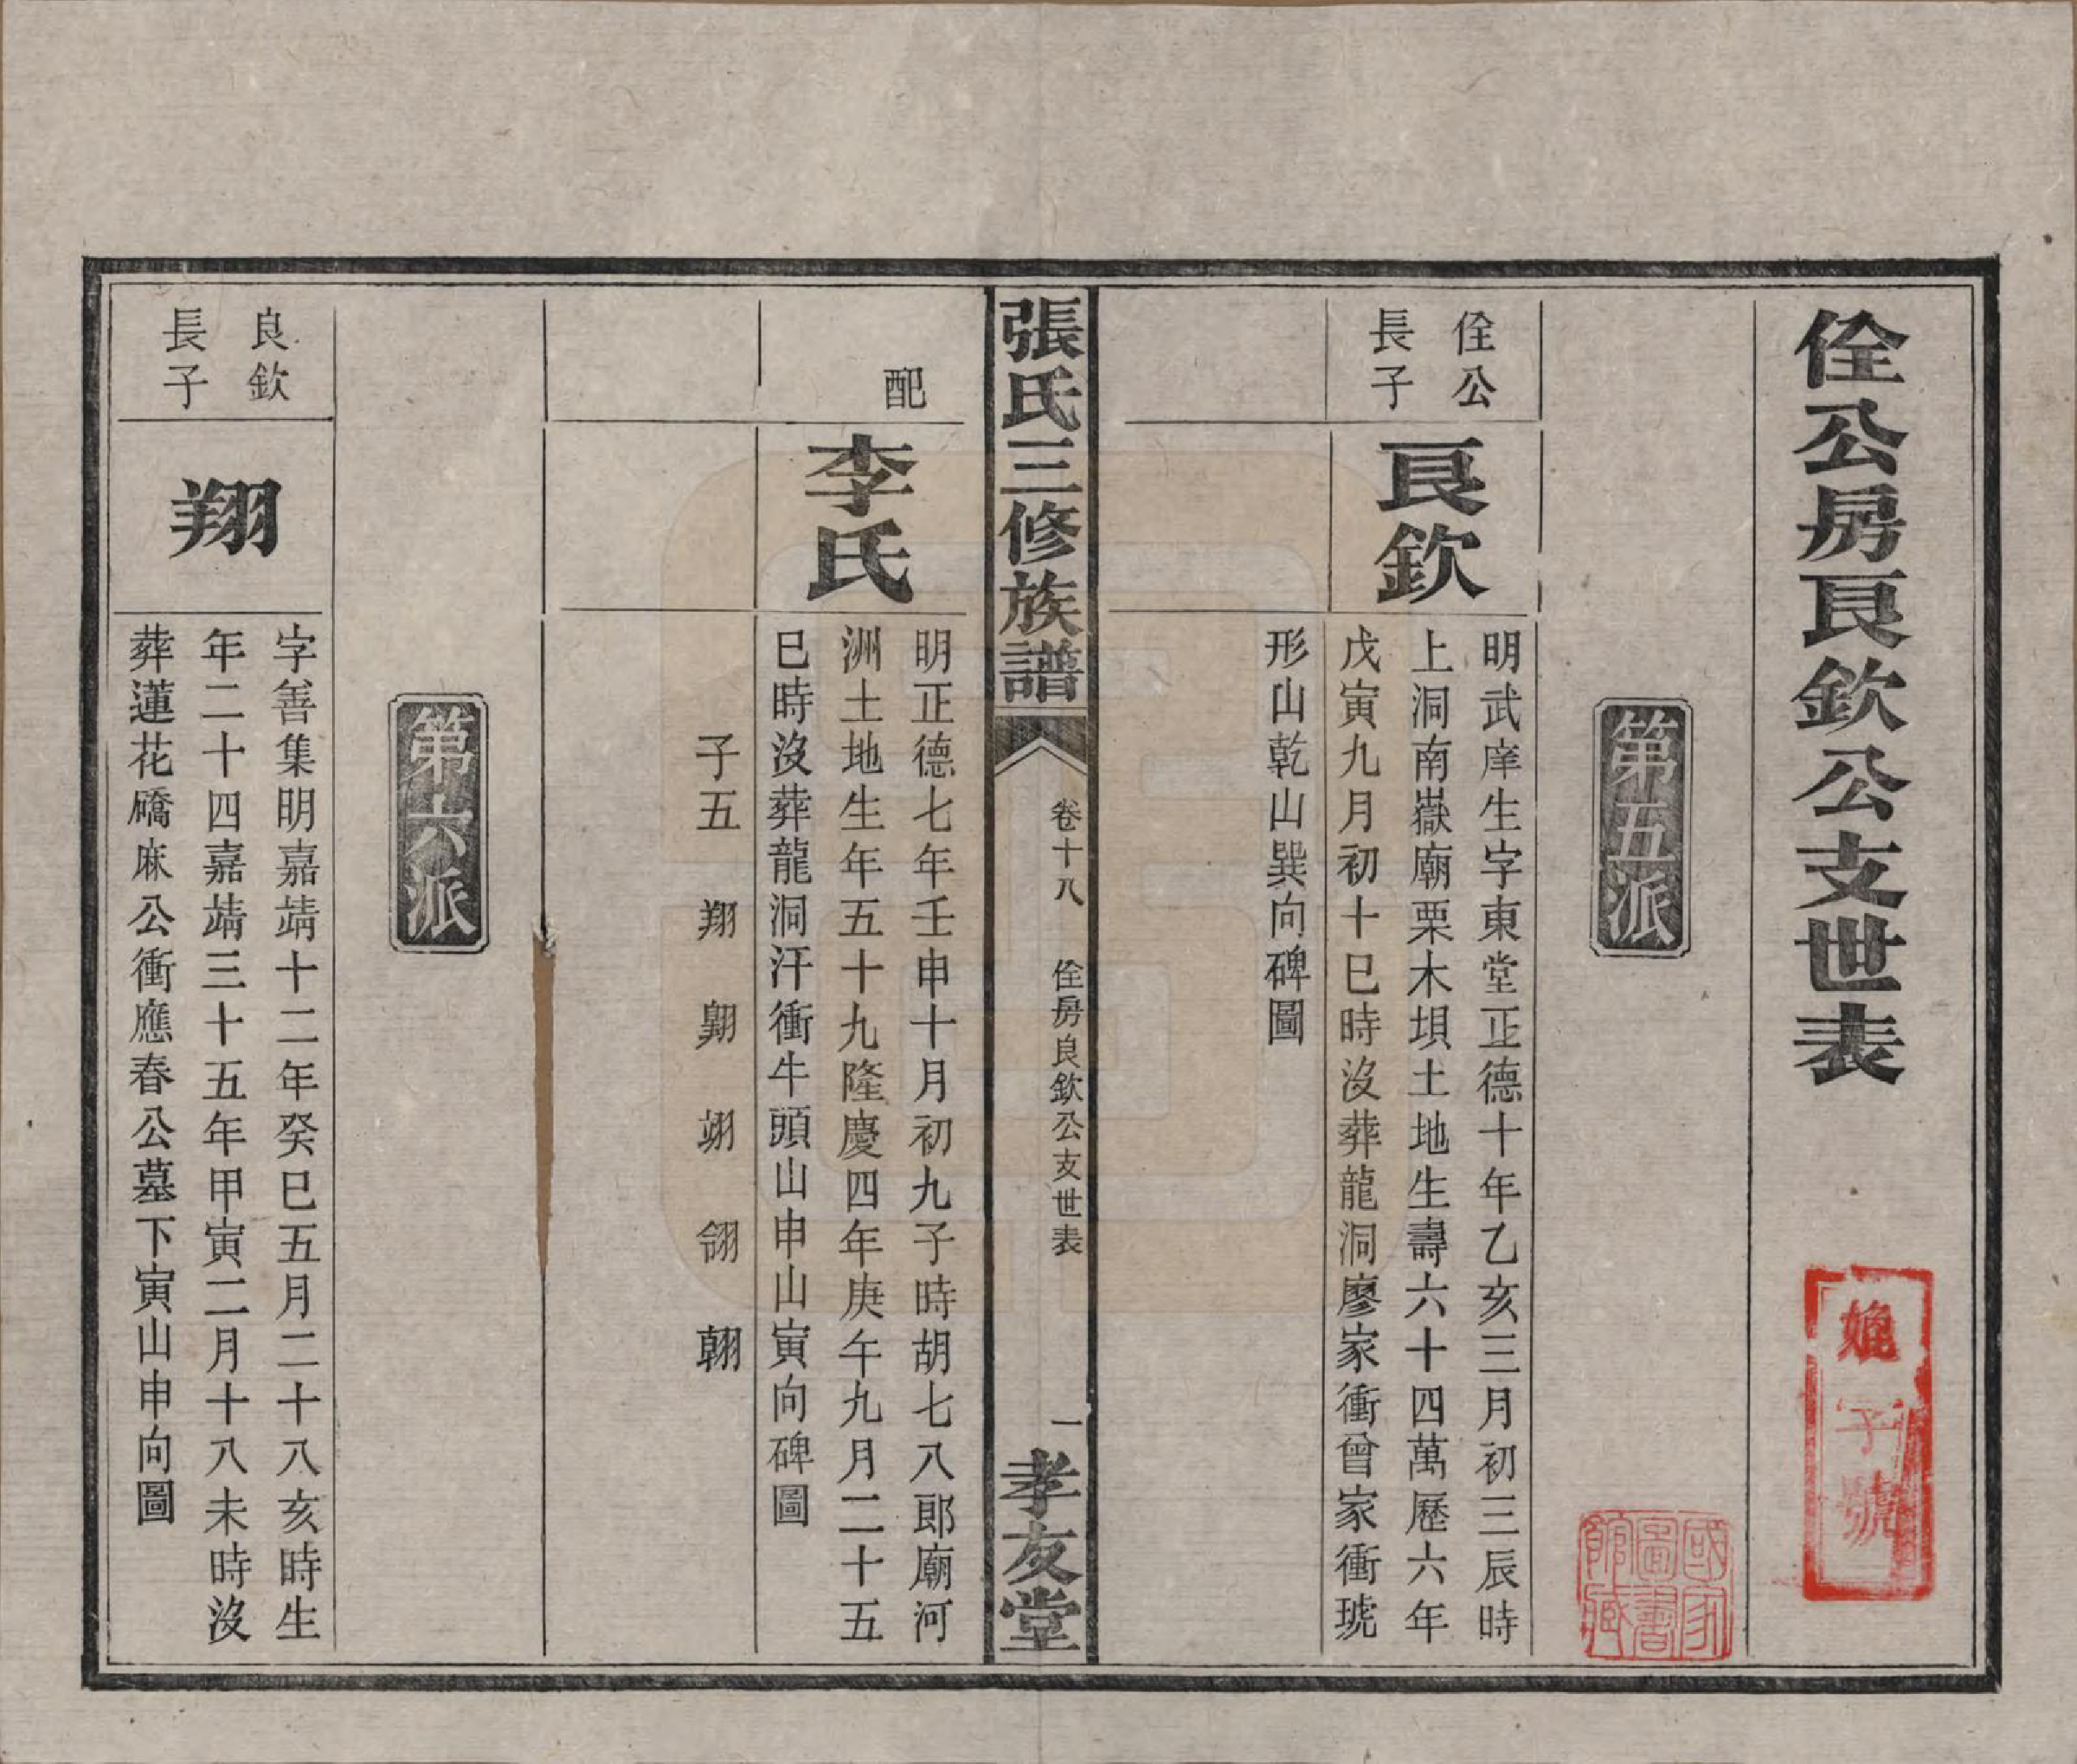 佺公房良欽公支世表
婏字號
國家圖書館藏
第五派
佺公
長子
良欽
明武庠生字東堂正德十年乙亥三月初三辰時
上洞南嶽廟栗木垻土地生壽六十四萬歷六年
戊寅九月初十巳時沒葬龍洞廖家衝曾家衝琥
形山乾山巽向碑圖
張氏三修族譜
卷十八
佺房良欽公支世表
一
孝友堂
配
李氏
明正德七年壬申十月初九子時胡七八郎廟河
洲土地生年五十九隆慶四年庚午九月二十五
巳時沒葬龍洞汗衝牛頭山申山寅向碑圖
子五 翔 翺 翊 翎 翶
第六派
良欽
長子
翔
字善集明嘉靖十二年癸巳五月二十八亥時生
年二十四嘉靖三十五年甲寅二月十八未時沒
葬蓮花礄庥公衝應春公墓下寅山申向圖